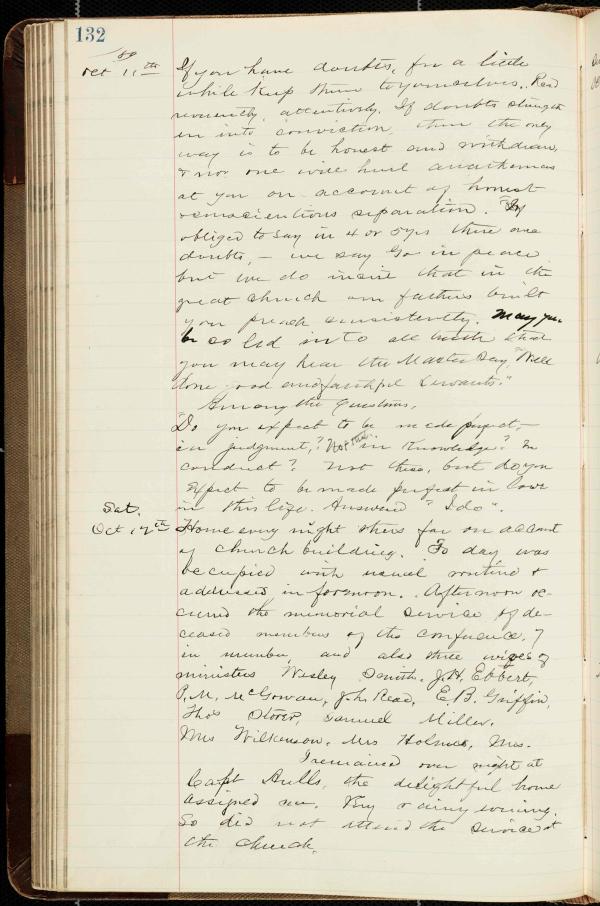 132
'89
Oct 11th If you have doubts, for a little
while keep them to yourselves. Read
reverently, attentively. If doubts strength
en into conviction, then the only
way is to be honest and withdraw,
& nor one will hurl anathemas
at you on account of honest
conscientious separation. If
obliged to say in 4 or 5 yrs there are
doubts, – we say Go in peace
but we do insist that in the
great church our fathers built
you preach consistently. May you
be so led into all truth that
you may hear the Master say, "Well
done good and faithful Servants."
Among the Questions,
"Do you expect to be made perfect, –
in judgment,? Not this in Knowledge? In
conduct? Not these, but do you
expect to be made perfect in love
in this life. Answered "I do".
Sat.
Oct 12th Home every night thus far on account
of church building. To day was
occupied with usual routine &
addresses in forenoon. Afternoon oc-
cured the memorial service of de-
ceased members of the conference, 7
in number, and also three wives of
ministers Wesley Smith. J.H. Ebbert,
P.M. McGowan, J.L. Read, E.B. Griffin,
Thos Storer, Samuel Miller.
Mrs Wilkenson, Mrs Holmes, Mrs.
I remained over night at
Capt Hulls, the delightful home
assigned me. Very rainy evening.
So did not attend the service at
the church.